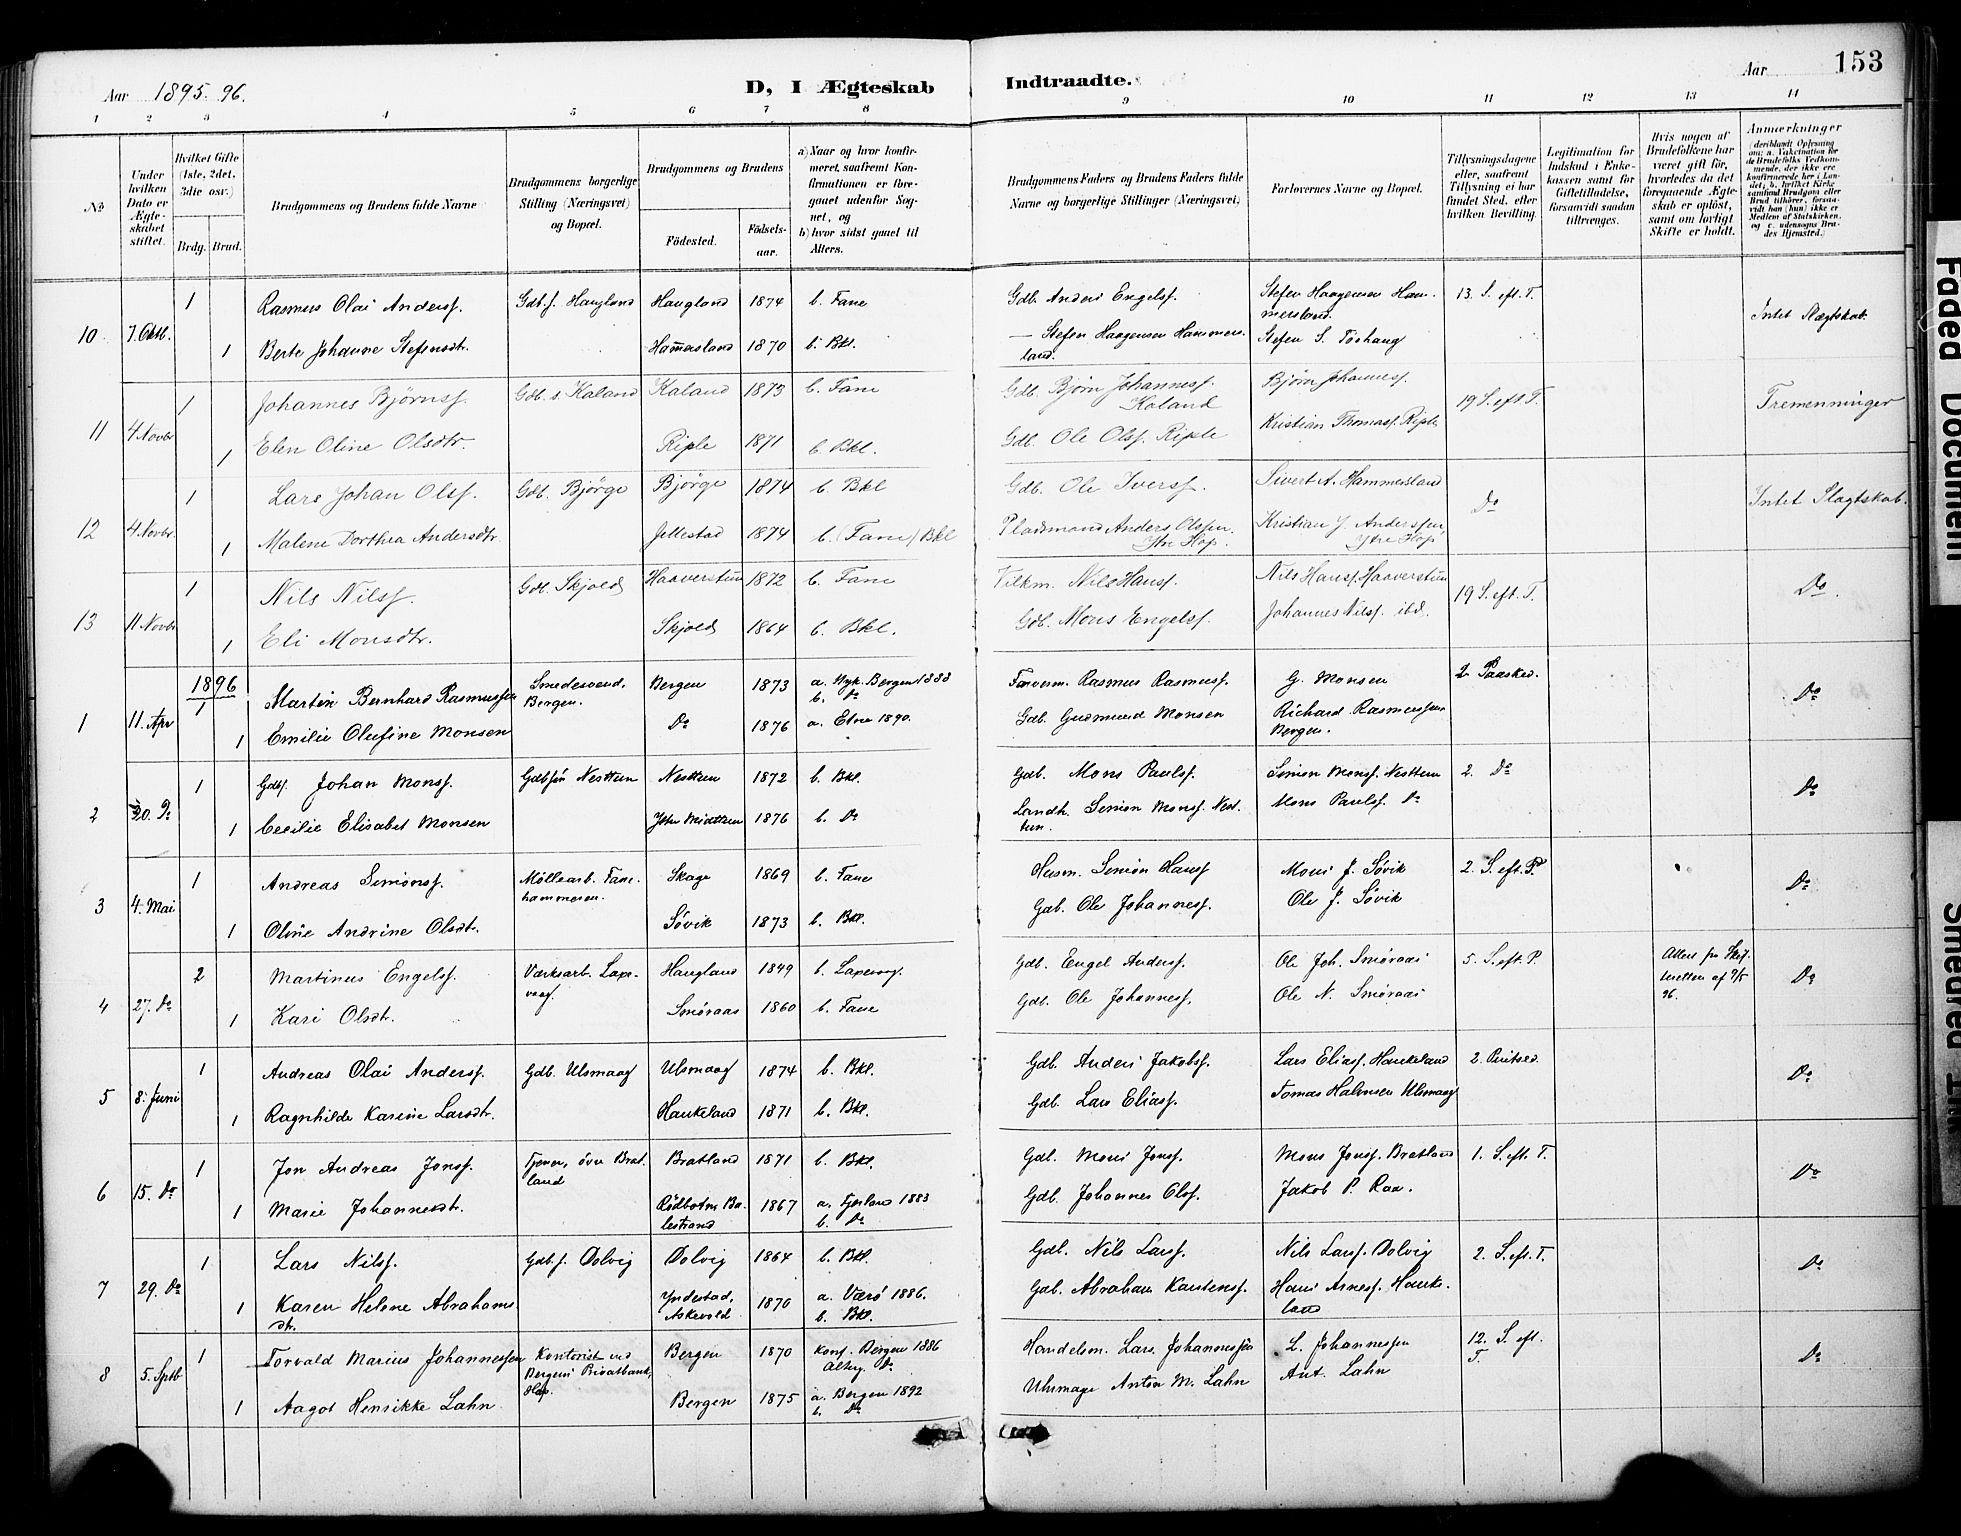 Aar 1895. 96.
D, I Ægteskab Indtraadte.
Aar 153
1 2 3 4 5 6 7 8 9 10 11 12 13 14
No
Under hvilken Dato er Ægteskabet stiftet.
Hvilket Gifte (1ste, 2det, 3die osv.)
Brdg. Brud.
Brudgommens og Brudens fulde Navne
Brudgommens borgerlige Stilling (Næringsvei) og Bopæl.
Brudgommens og Brudens
Födested. Födselsaar.
a) Naar og hvor konfirmeret, saafremt Konfirmationen er foregaaet udenfor Sognet, og
b) hvor sidst gaaet til Alters.
Brudgommens Faders og Brudens Faders fulde Navne og borgerlige Stillinger (Næringsvei)
Forlovernes Navne og Bopæl.
Tillysningsdagene eller, saafremt Tillysning ei har fundet Sted, efter hvilken Bevilling.
Legitimation for Indskud i Enkekassen samt for Giftetilladelse, forsaavidt saadan tiltrænges.
Hvis nogen af Brudefolkene har været gift för, hvorledes da det foregaaende Ægteskab er oplöst, samt om lovligt Skifte er holdt.
Anmærkninger (deriblandt Oplysning om: a. Vakcination for de Brudefolks Vedkommende, der ikke ere konfirmerede her i Landet; b. hvilket Kirkesamfund Brudgom eller Brud tilhörer, forsaavidt han (hun) ikke er Medlem af Statskirken, og c. udensogns Brudes Hjemsted.)
10 7. Oktb. 1 Rasmus Olai Anderss. Gdb.s. Haugland Haugland 1874 b. Fane Gdb. Anders Engelss. Stefen Haagensen Hammersland. 13. S. eft. T. Intet Slægtskab.
1 Berte Johanne Stefensdtr. Hammersland 1870 b. Bkl. — Stefen Haagensen Hammersland. Stefen S.
11 4 Novbr 1 Johannes Björnss. Gdb. s. Kaland Kaland 1873 b. Fane Gdb. Bjørn Johanness. Kaland Bjørn Johanness. 19 S. eft. T. Tremenninger
1 Elen Oline Olsdtr. Riple 1871 b. Bkl. Gdb. Ole Olss. Riple Kristian Thomass. Riple
12 4. Novbr. 1 Lars Johan Olss. Gdb. Bjørge Bjørge 1874 b. Bkl Gdb. Ole Iverss. Sivert A. Hammersland Do Intet Slægtskab.
1 Malene Dorthea Andersdtr. Jellestad 1874 b. (Fane) Bkl Pladsmand Anders Olssen. Ytre Hop. Kristian J. Anderssen, Ytre Hop
13 11 Novbr 1 Nils Nilss. Gdb. Skjold Haaverstun 1872 b. Fane Vilkm. Nils Hanss. Nils Hanss. Haaverstun 19 S. eft. T. Do.
1 Eli Monsdtr. Skjold 1864 b. Bkl. Gdb. Mons Engelss. Johannes Nilss. ibd.
1896
1 11. Apr 1 Martin Bernhard Rasmussen Smedesvend, Bergen. Bergen 1873 a. Nyk. Bergen 1888 b. Do Farverm. Rasmus Rasmuss. G. Monsen 2 Paasked. Do
1 Emilie Olufine Monsen Do 1876 a. Etne 1890. Gdb. Gudmund Monsen Richard Rasmussen Bergen.
2 20. Do 1 Gdbs. Johan Monss. Gdbsøn Nesttun Nesttun 1872 b. Bkl. Gdb. Mons Paulss. Simon Monss. Nesttun 2. Do Do
1 Cecilie Elisabet Monsen 1876 b. Do Landh. Simon Monss. Nesttun. Mons Paulss. Do
3 4. Mai 1 Andreas Simonss. Møllearb. Fanehammeren. Skage 1869 b. Fane Husm. Simon Hanss Mons J. Søvik 2. S. eft. P. Do
1 Oline Andrine Olsdtr. Søvik 1873 b. Bkl. Gdb. Ole Johanness. Ole J. Søvik
4 27. Do 2 Martinus Engelss. Værksarb. Laxevaag. Haugland 1849 b. Laxevog. Gdb. Engel Anderss. Ole Joh. Smøraas 5. S. eft. P. Attest fra Skifteretten af 9/5 96. Do
1 Kari Olsdtr. Smøraas 1860 b. Fane Gdb. Ole Johanness. Ole N. Smøraas
5 8. Juni 1 Andreas Olai Anderss. Gdb. Ulsmaag Ulsmaag 1874 b. Bkl. Gdb. Anders Jakobss. Lars Eliass. Haukeland 2. Pintsed. Do
1 Ragnhilde Karine Larsdtr. Haukeland 1871 b. Bkl. Gdb. Lars Eliass. Tomas Halvorsen Ulsmaag
6 15. Do 1 Jon Andreas Jonss. Tjener, øvre Bratland Bratland 1871 b. Bkl. Gdb. Mons Jonss. Mons Jonss. Bratland 1. S. eft. T. Do
1 Marie Johannesdtr. Balestrand 1867 a. Fjærland 1883 b. Do Gdb. Johannes Olss. Jakob P. Raa.
7 29. Do 1 Lars Nilss. Gdb.s. Dolvig Dolvig 1864 b. Bkl. Gdb. Nils Larss. Nils Larss. Dolvig 2. S. eft. T. Do
1 Karen Helene Abrahamsdtr. Yndestad, Askevold 1870 a. Værø 1886. b. Bkl. Gdb. Abraham Karstenss. Hans Arness. Haukeland
8 5. Sptb 1 Torvald Marius Johannessen Kontorist ved Bergens Privatbank, Hop. Bergen 1870 Konf. Bergen 1886 Altrg. Do Handelsm. Lars Johannessen L. Johannessen 12. S. eft. T. Do
1 Aagot Henrikke Lahn Bergen 1875 a. Bergen 1892 b. Do Uhrmager Anton M. Lahn Ant. Lahn
Faded Document
Smeared Ink